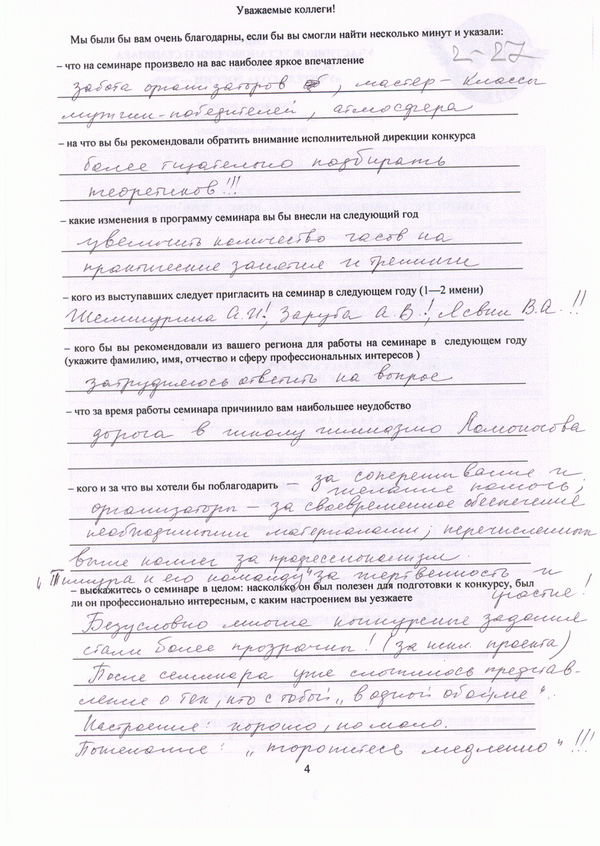 Уважаемые коллеги!
Мы были бы вам очень благодарны, если бы вы смогли найти несколько минут и указали:
2-27
– что на семинаре произвело на вас наиболее яркое впечатление
забота организаторов, мастер-классы
мужчин-победителей, атмосфера
– на что вы бы рекомендовали обратить внимание исполнительной дирекции конкурса
более тщательно подбирать
теоретиков!!!
– какие изменения в программу семинара вы бы внесли на следующий год
увеличить количество часов на
практические занятия и тренинги
– кого из выступавших следует пригласить на семинар в следующем году (1—2 имени)
Шемшурина А.И!, Заруба А.В.!, Ясвин В.А.!!
– кого бы вы рекомендовали из вашего региона для работы на семинаре в следующем году
(укажите фамилию, имя, отчество и сферу профессиональных интересов )
затрудняюсь ответить на вопрос
– что за время работы семинара причинило вам наибольшее неудобство
дорога в школу гимназию Ломоносова
– кого и за что вы хотели бы поблагодарить — за сопереживание и
желание помочь;
организаторы – за своевременное обеспечение
необходимыми материалами; перечисленных
выше коллег за профессионализм.
"Тимура и его команду" за жертвенность и
участие!
– выскажитесь о семинаре в целом: насколько он был полезен для подготовки к конкурсу, был
ли он профессионально интересным, с каким настроением вы уезжаете
Безусловно многие конкурсные задания
стали более прозрачны! (за искл. проекта)
После семинара уже сложилось представ-
ление о тех, кто с тобой „в одной обойме".
Настроение: хорошо, но мало.
Пожелание: „торопитесь медленно"!!!
4